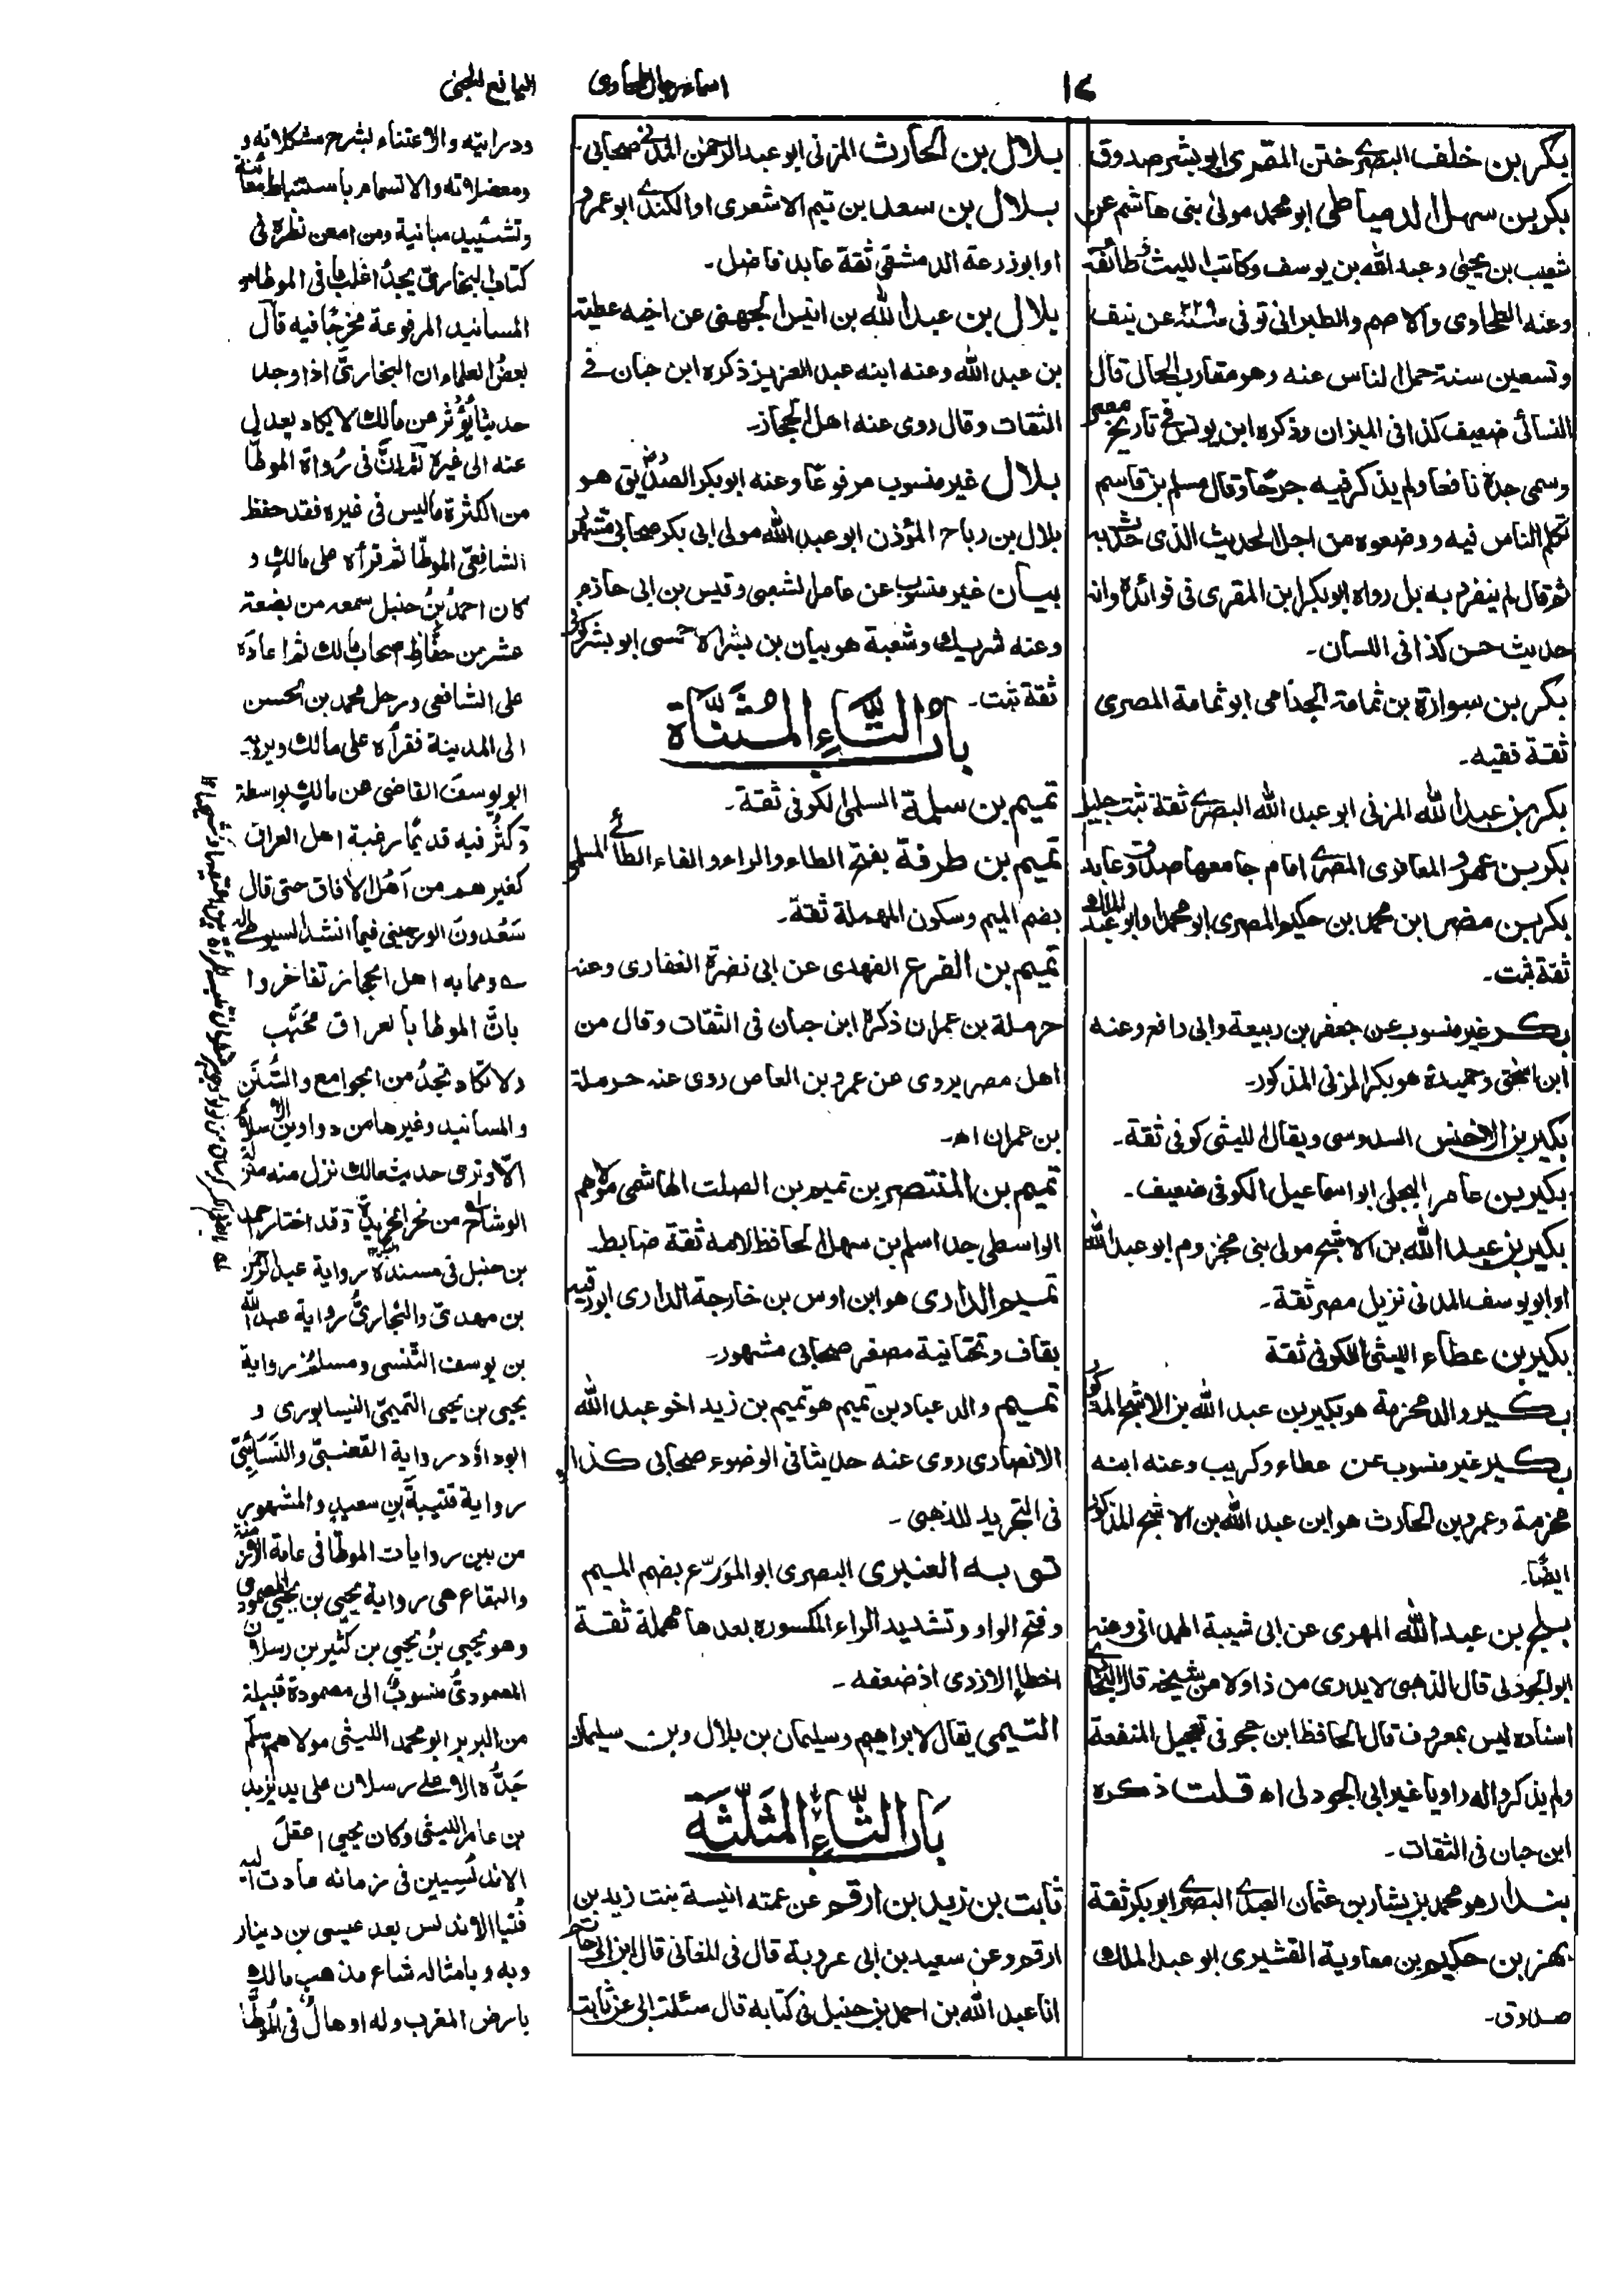 ١٤
اسماء رجال الطحاوى
اليانع الجنى
بكر بن خلف البصرى ختن المقرى ابو بشر صدوق
بكر بن سهل الدمياطى ابو محمد مولى بنى هاشم عن
شعيب بن يحيى وعبد الله بن يوسف وكاتب الليث وطائفة
وعنه الطحاوى والاصم والطبرانى توفى سنة ٢٨٩ عن نيف
وتسعين سنة حمل الناس عنه وهو مقارب الحال قال
النسائى ضعيف كذا فى الميزان وذكره ابن يونس فى تاريخ مصر
وسمى جده نافعا ولم يذكر فيه جرحا وقال مسلم بن قاسم
تكلم الناس فيه ووضعوه من اجل الحديث الذى حدث به
ثم قال لم ينفرد به بل رواه ابو بكر ابن المقرى فى فوائده وانه
حديث حسن كذا فى اللسان۔
بكر بن سوادة بن ثمامة الجذامى ابو ثمامة المصرى
ثقة فقيه۔
بكر بن عبد الله المزنى ابو عبد الله البصرى ثقة ثبت جليل
بكر بن عمرو المعافرى المصرى امام جامعها صدوق عابد
بكر بن مضر ابن محمد بن حكيم المصرى ابو محمد او ابو عبد الملك
ثقة ثبت۔
بكر غير منسوب عن جعفر بن ربيعة وابى رافع وعنه
ابن اسحق وحميدة هو بكر المزنى المذكور۔
بكير بن الاخنس السدوسى ويقال الليثى كوفى ثقة۔
بكير بن عامر البجلى ابو اسماعيل الكوفى ضعيف۔
بكير بن عبد الله بن الاشج مولى بنى مخزوم ابو عبد الله
او ابو يوسف المدنى نزيل مصر ثقة۔
بكير بن عطاء الليثى الكوفى ثقة
بكير والد مخرمة هو بكير بن عبد الله بن الاشج المذكور
بكير غير منسوب عن عطاء وكريب وعنه ابنه
مخرمة وعمرو بن الحارث هو ابن عبد الله بن الاشج المذكور
ايضًا۔
بلج بن عبد الله المهرى عن ابى شيبة المهدانى وعنه
ابو الجودى قال الذهبى لا يدرى من ذا ولا من شيخه قال البخارى
اسناده ليس بمعروف قال الحافظ ابن حجر فى تعجيل المنفعة
ولم يذكروا له راويا غير ابى الجودى اه قلت ذكره
ابن حبان فى الثقات۔
بندار هو محمد بن بشار بن عثمان العبدى البصرى ابو بكر ثقة
بهز بن حكيم بن معاوية القشيرى ابو عبد الملك
صدوق۔
بلال بن الحارث المزنى ابو عبد الرحمن المدنى صحابى۔
بلال بن سعد بن تيم الاشعرى او الكندى ابو عمرو
او ابو زرعة الدمشقى ثقة عابد فاضل۔
بلال بن عبد الله بن انيس الجهنى عن اخيه عطية
بن عبد الله وعنه ابنه عبد العزيز ذكره ابن حبان فى
الثقات وقال روى عنه اهل الحجاز۔
بلال غير منسوب مرفوعًا وعنه ابو بكر الصديق رض هو
بلال بن رباح المؤذن ابو عبد الله مولى ابى بكر صحابى مشهور
بيان غير منسوب عن عامر الشعبى وقيس بن ابى حازم
وعنه شريك وشعبة هو بيان بن بشر الاحمسى ابو بشر كوفى
ثقة ثبت۔
بَابُ التَّاءِ المُثَنَّاة
تميم بن سلمة السلمى الكوفى ثقة۔
تميم بن طرفة بفتح الطاء والراء والفاء الطائى المسلى
بضم الميم وسكون المهملة ثقة۔
تميم بن القرع الفهدى عن ابى نضرة الغفارى وعنه
حرملة بن عمران ذكره ابن حبان فى الثقات وقال من
اهل مصر يروى عن عمرو بن العاص روى عنه حرملة
بن عمران اه۔
تميم بن المنتصر بن تميم بن الصلت الهاشمى مولاهم
الواسطى جد اسلم بن سهل الحافظ لامه ثقة ضابط۔
تميم الدارى هو ابن اوس بن خارجة الدارى ابو رقية
بقاف وتحتانية مصغر صحابى مشهور۔
تميم والد عباد بن تميم هو تميم بن زيد اخو عبد الله
الانصارى روى عنه حديثا فى الوضوء صحابى كذا
فى التجريد للذهبى۔
توبه العنبرى البصرى ابو المورّع بضم الميم
وفتح الواو وتشديد الراء المكسوره بعدها مهملة ثقة
اخطإ الازدى اذ ضعفه۔
التيمى يقال لابراهيم وسليمان بن بلال وبن سليمان
بَابُ الثَّاءِ المُثَلَّثَة
ثابت بن زيد بن ارقم عن عمته انيسة بنت زيد بن
ارقم وعن سعيد بن ابى عروبة قال فى المغانى قال ابن ابى حاتم
انا عبد الله بن احمد بن حنبل فى كتابه قال سئلت ابى عن ثابت
ودرايته والاعتناء بشرح مشكلاته و
ومعضلاته والاتسام باستنباط معانيه
وتشييد مبانية ومن امعن نظره فى
كتاب البخارىّ يجدُ اغلب ما فى الموطا من
المسانيد المرفوعة مخرجًا فيه قال
بعضُ العلماء ان البخارىَّ اذا وجد
حديثا يُؤثر عن مالك لا يكاد يعدل
عنه الى غيره ثم انَّ فى رُواة الموطّا
من الكثرة ما ليس فى غيره فقد حفظ
الشافعىّ الموطّا ثم قرأه على مالك و
كان احمدُ بنُ حنبل سمعه من بضعة
عشر من حفّاظ اصحاب مالك ثم اعاده
على الشافعى ورحل محمد بن الحسن
الى المدينة فقرأه على مالك ويرويه
ابو يوسف القاضى عن مالك بواسطة
وكثر فيه قديمًا رغبة اهل العراق
كغيرهم من اهل الآفاق حتى قال
سَعْدونَ الورجينى فيما انشد السيوطى له
ے ومما به اهل الحجاز تفاخروا
بانَّ الموطا بالعراق محبَّب
ولا تكاد تجدُ من الجوامع والسُّنَن
والمسانيد وغيرها من دواوين الاسلام
الّا وترى حديث مالك نزل منه منزلة
الوشاح من نحر الخريدة وقد اختار احمد
بن حنبل فى مسنده رواية عبد الرحمن
بن مهدىّ والبخارىُّ رواية عبد الله
بن يوسف التنسى ومسلمٌ رواية
يحيى بن يحيى التميمىّ النيسابورى و
ابو داؤد رواية القعنبىّ والنَسَائىّ
رواية قتيبة بن سعيد والمشهور
من بين روايات الموطّا فى عامة الازمنة
والبقاع هى رواية يحيى بن يحيى المصمودى
وهو يحيى بنُ يحيى بن كثير بن رسلان
المصمودىُّ منسوبٌ الى مصمودة قبيلة
من البربر ابو محمد الليثى مولاهم اسلم
جَدُّه الاعلى رسلان على يد يزيد
بن عامر الليثى وكان يحيى اعقلَ
الاندلُسِيين فى زمانه عادت اليه
فُتيا الاندلس بعد عيسى بن دينار
وبه وبامثاله شاع مذهب مالك
بارض المغرب وله اوهالٌ فى الموطّا